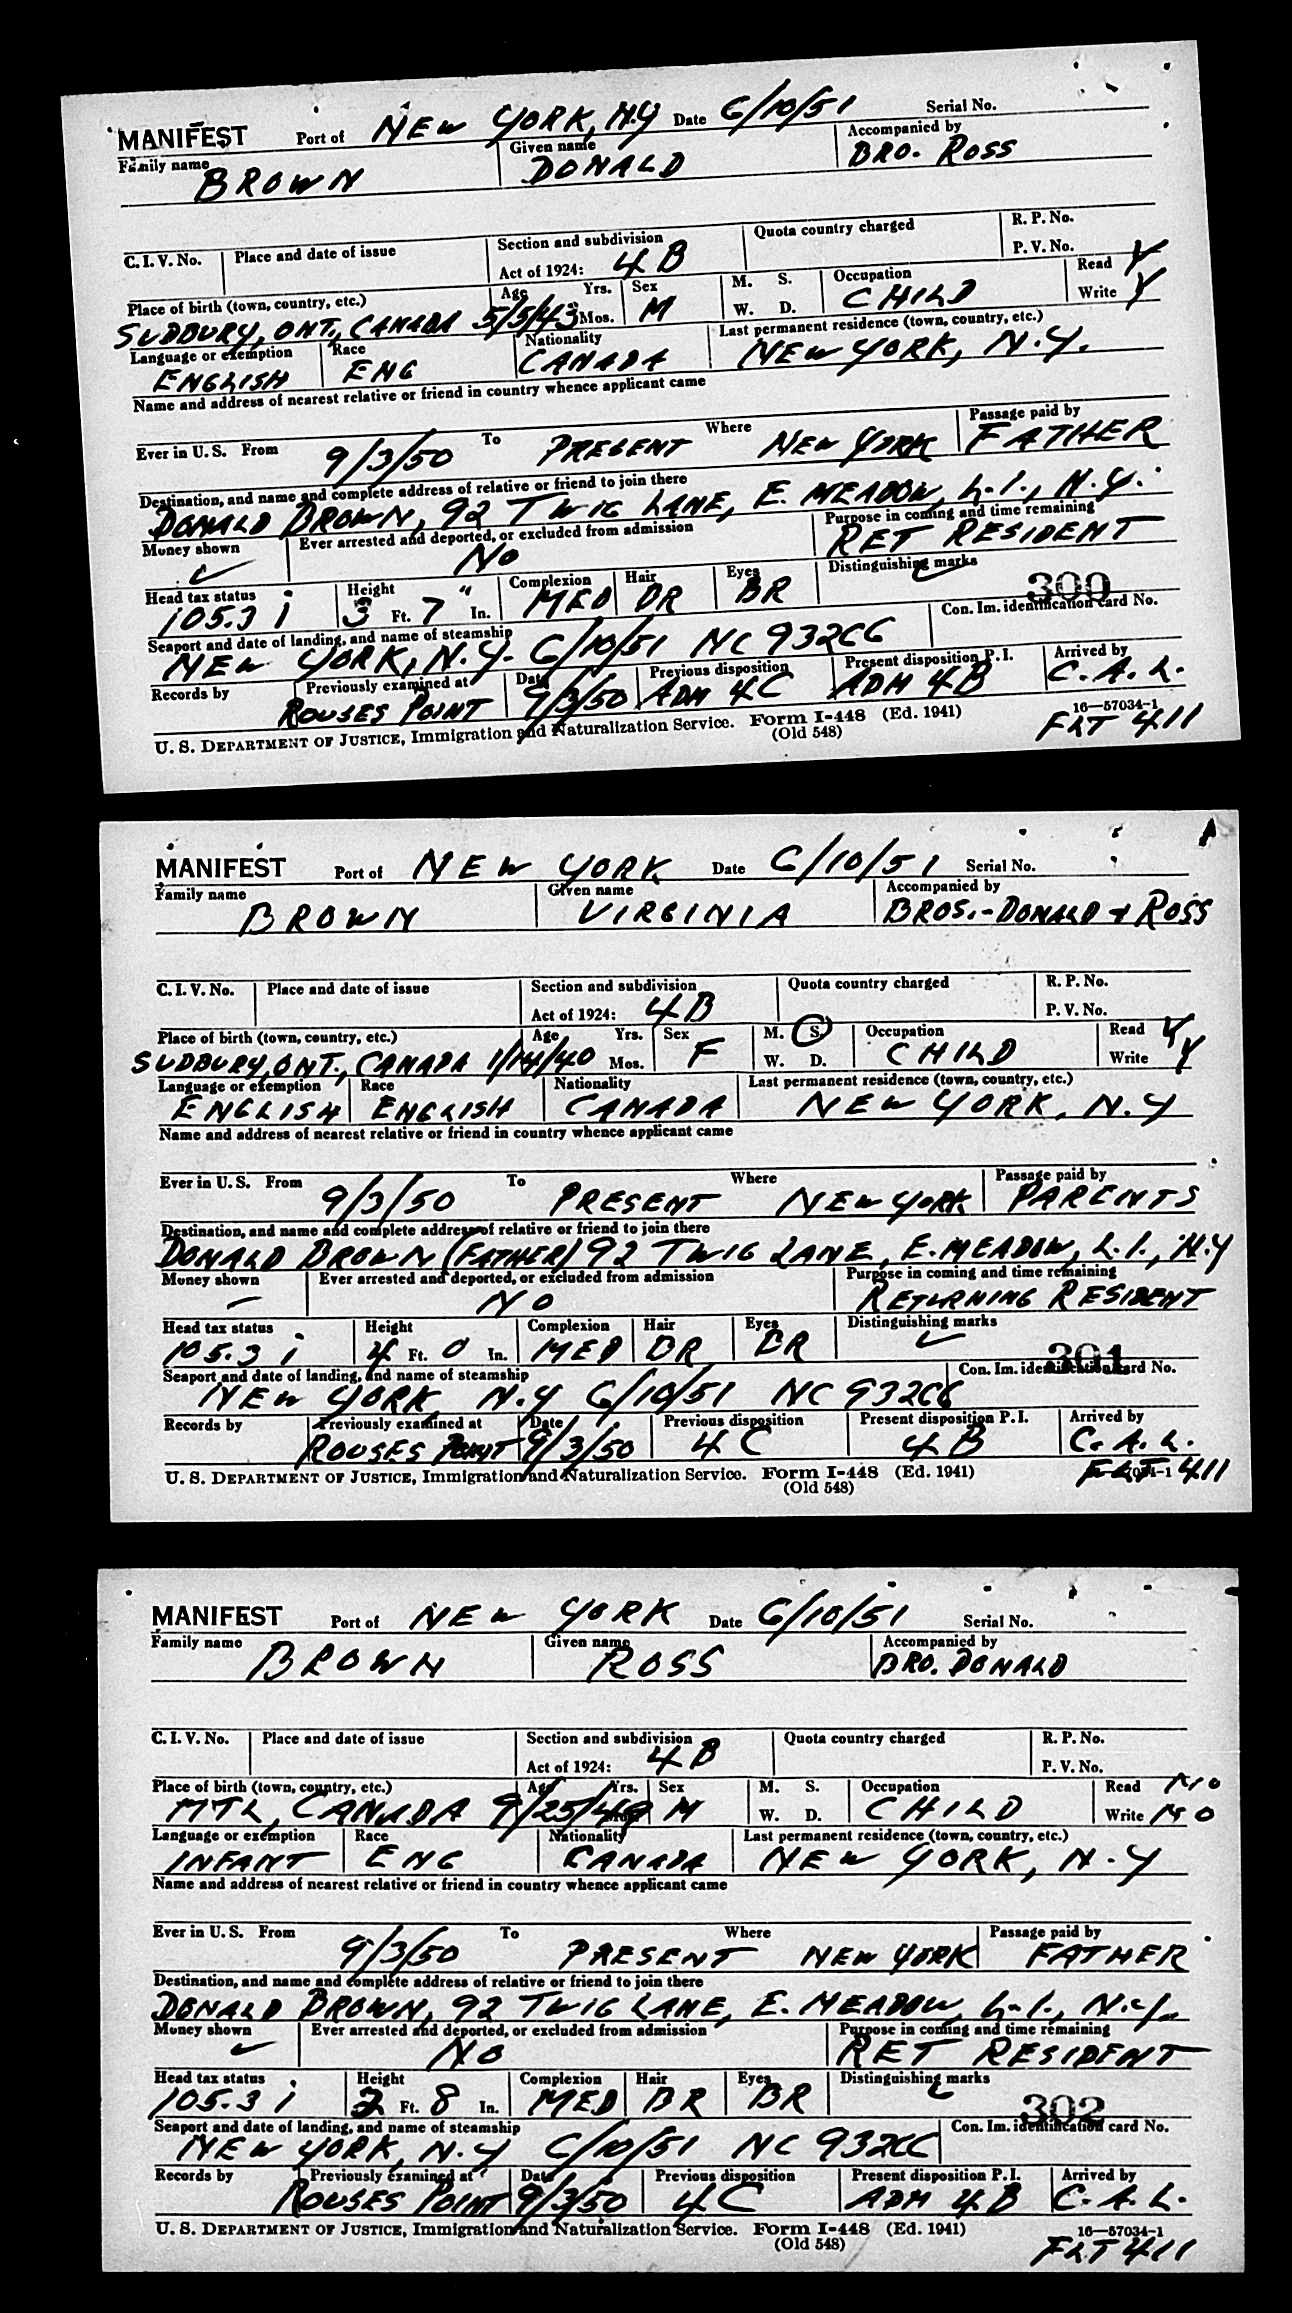 MANIFEST Port of NEW YORK, N.Y Date 6/10/51 Serial No.
Family name BROWN Given name DONALD Accompanied by BRO. ROSS
C. I. V. No. Place and date of issue Section and subdivision Act of 1924: 4B Quota country charged R. P. No. P. V. No.
Place of birth (town, country, etc.) SUDBURY, ONT., CANADA Age 5/5/43 Yrs. Mos. Sex M M. S. W. D. Occupation CHILD Read Y Write Y
Language or exemption ENGLISH Race ENG Nationality CANADA Last permanent residence (town, country, etc.) NEW YORK, N.Y.
Name and address of nearest relative or friend in country whence applicant came
Ever in U. S. From 9/3/50 To PRESENT Where NEW YORK Passage paid by FATHER
Destination, and name and complete address of relative or friend to join there
DONALD BROWN, 92 TWIG LANE, E. MEADOW, L.I., N.Y.
Money shown Ever arrested and deported, or excluded from admission NO Purpose in coming and time remaining RET RESIDENT
Head tax status 105.3 i Height 3 Ft. 7" In. Complexion MED Hair BR Eyes BR Distinguishing marks 300
Seaport and date of landing, and name of steamship NEW YORK, N.Y. 6/10/51 NC 93266 Con. Im. identification card No.
Records by Previously examined at ROUSES POINT Date 9/3/50 Previous disposition ADM 4C Present disposition P. I. ADM 4B Arrived by C.A.L.
U. S. DEPARTMENT OF JUSTICE, Immigration and Naturalization Service. Form I-448 (Ed. 1941) 16—57034-1
(Old 548) FLT 411
MANIFEST Port of NEW YORK Date 6/10/51 Serial No.
Family name BROWN Given name VIRGINIA Accompanied by BROS.-DONALD + ROSS
C. I. V. No. Place and date of issue Section and subdivision Act of 1924: 4B Quota country charged R. P. No. P. V. No.
Place of birth (town, country, etc.) SUDBURY, ONT., CANADA Age 1/14/40 Yrs. Mos. Sex F M. S. W. D. Occupation CHILD Read Y Write Y
Language or exemption ENGLISH Race ENGLISH Nationality CANADA Last permanent residence (town, country, etc.) NEW YORK, N.Y
Name and address of nearest relative or friend in country whence applicant came
Ever in U. S. From 9/3/50 To PRESENT Where NEW YORK Passage paid by PARENTS
Destination, and name and complete address of relative or friend to join there
DONALD BROWN (FATHER) 92 TWIG LANE, E. MEADOW, L.I., N.Y
Money shown Ever arrested and deported, or excluded from admission NO Purpose in coming and time remaining RETURNING RESIDENT
Head tax status 105.3 i Height 4 Ft. 0 In. Complexion MED Hair BR Eyes BR Distinguishing marks 301
Seaport and date of landing, and name of steamship NEW YORK, N.Y 6/10/51 NC 93266 Con. Im. identification card No.
Records by Previously examined at ROUSES POINT Date 9/3/50 Previous disposition 4C Present disposition P. I. 4B Arrived by C.A.L.
U. S. DEPARTMENT OF JUSTICE, Immigration and Naturalization Service. Form I-448 (Ed. 1941) FLT 411
(Old 548)
MANIFEST Port of NEW YORK Date 6/10/51 Serial No.
Family name BROWN Given name ROSS Accompanied by BRO. DONALD
C. I. V. No. Place and date of issue Section and subdivision Act of 1924: 4B Quota country charged R. P. No. P. V. No.
Place of birth (town, country, etc.) MTL, CANADA Age Yrs. Sex M M. S. W. D. Occupation CHILD Read NO Write NO
Language or exemption INFANT Race ENG Nationality CANADA Last permanent residence (town, country, etc.) NEW YORK, N.Y
Name and address of nearest relative or friend in country whence applicant came
Ever in U. S. From 9/3/50 To PRESENT Where NEW YORK Passage paid by FATHER
Destination, and name and complete address of relative or friend to join there
DONALD BROWN, 92 TWIG LANE, E. MEADOW, L.I., N.Y.
Money shown Ever arrested and deported, or excluded from admission NO Purpose in coming and time remaining RET RESIDENT
Head tax status 105.3 i Height 2 Ft. 8 In. Complexion MED Hair BR Eyes BR Distinguishing marks 302
Seaport and date of landing, and name of steamship NEW YORK, N.Y 6/10/51 NC 93266 Con. Im. identification card No.
Records by Previously examined at ROUSES POINT Date 9/3/50 Previous disposition 4C Present disposition P. I. ADM 4B Arrived by C.A.L.
U. S. DEPARTMENT OF JUSTICE, Immigration and Naturalization Service. Form I-448 (Ed. 1941) 16—57034-1
(Old 548) FLT 411